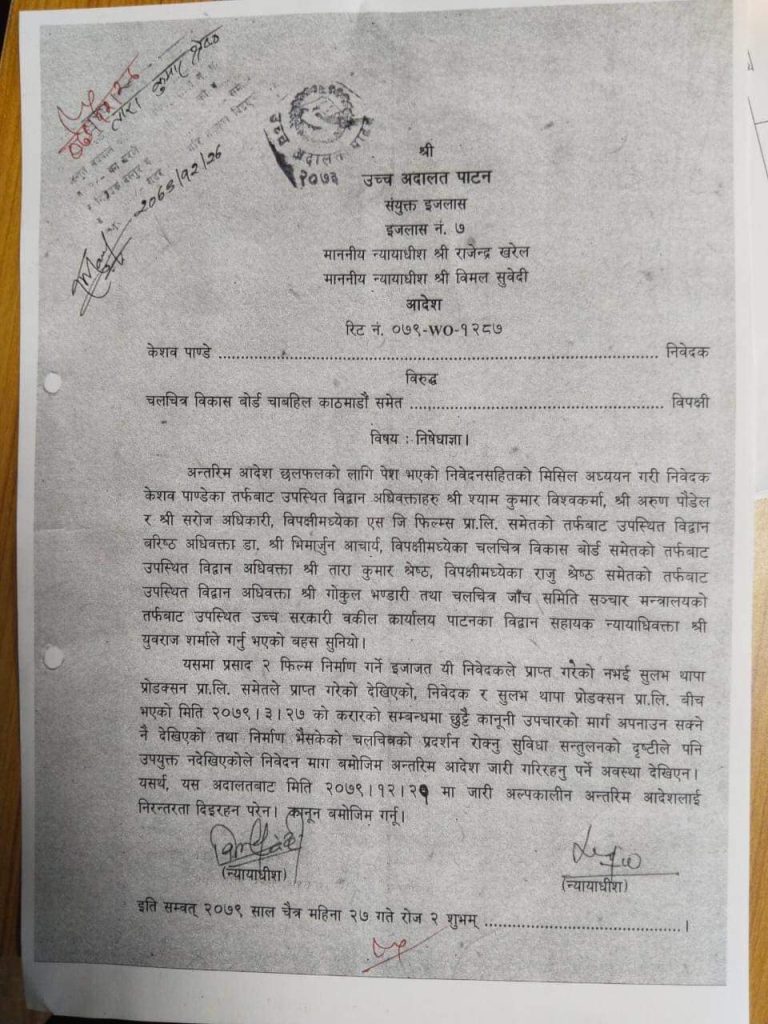 तारा कुमार श्रेष्ठ
उच्च अदालत पाटन
२०७३
श्री
उच्च अदालत पाटन
संयुक्त इजलास
इजलास नं. ७
माननीय न्यायाधीश श्री राजेन्द्र खरेल
माननीय न्यायाधीश श्री विमल सुवेदी
आदेश
रिट नं. ०७९-WO-१२८७
केशव पाण्डे ........................................................................ निवेदक
विरुद्ध
चलचित्र विकास बोर्ड चाबहिल काठमाडौं समेत .......................................... विपक्षी
विषय : निषेधाज्ञा।
अन्तरिम आदेश छलफलको लागि पेश भएको निवेदनसहितको मिसिल अध्ययन गरी निवेदक
केशव पाण्डेका तर्फबाट उपस्थित विद्वान अधिवक्ताहरु श्री श्याम कुमार विश्वकर्मा, श्री अरुण पौडेल
र श्री सरोज अधिकारी, विपक्षीमध्येका एस जि फिल्म्स प्रा.लि. समेतको तर्फबाट उपस्थित विद्वान
बरिष्ठ अधिवक्ता डा. श्री भिमार्जुन आचार्य, विपक्षीमध्येका चलचित्र विकास बोर्ड समेतको तर्फबाट
उपस्थित विद्वान अधिवक्ता श्री तारा कुमार श्रेष्ठ, विपक्षीमध्येका राजु श्रेष्ठ समेतको तर्फबाट
उपस्थित विद्वान अधिवक्ता श्री गोकुल भण्डारी तथा चलचित्र जाँच समिति सञ्चार मन्त्रालयको
तर्फबाट उपस्थित उच्च सरकारी वकील कार्यालय पाटनका विद्वान सहायक न्यायाधिवक्ता श्री
युवराज शर्माले गर्नु भएको बहस सुनियो।
यसमा प्रसाद २ फिल्म निर्माण गर्ने इजाजत यी निवेदकले प्राप्त गरेको नभई सुलभ थापा
प्रोडक्सन प्रा.लि. समेतले प्राप्त गरेको देखिएको, निवेदक र सुलभ थापा प्रोडक्सन प्रा.लि. बीच
भएको मिति २०७९।३।२७ को करारको सम्बन्धमा छुट्टै कानूनी उपचारको मार्ग अपनाउन सक्ने
नै देखिएको तथा निर्माण भैसकेको चलचित्रको प्रदर्शन रोक्नु सुविधा सन्तुलनको दृष्टीले पनि
उपयुक्त नदेखिएकोले निवेदन माग बमोजिम अन्तरिम आदेश जारी गरिरहनु पर्ने अवस्था देखिएन।
यसर्थ, यस अदालतबाट मिति २०७९।१२।२१ मा जारी अल्पकालीन अन्तरिम आदेशलाई
निरन्तरता दिइरहन परेन। कानून बमोजिम गर्नू।
(न्यायाधीश)
(न्यायाधीश)
इति सम्वत् २०७९ साल चैत्र महिना २७ गते रोज २ शुभम् ..........................................।